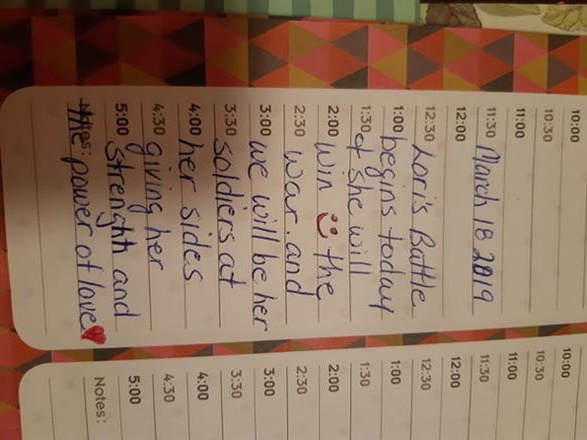 10:00
10:30
11:00
11:30 March 18 2019
12:00
12:30 Lori's Battle
1:00 begins today
1:30 & she will
2:00 win the
2:30 war. and
3:00 we will be her
3:30 soldiers at
4:00 her sides
4:30 giving her
5:00 strenghth and
Notes: the power of love
10:00
10:30
11:00
11:30
12:00
12:30
1:00
1:30
2:00
2:30
3:00
3:30
4:00
4:30
5:00
Notes: